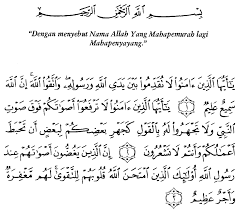 بِسْمِ اللَّهِ الرَّحْمَٰنِ الرَّحِيمِ
"Dengan menyebut Nama Allah Yang Mahapemurah lagi
Mahapenyayang."
يَٰٓأَيُّهَا الَّذِينَ ءَامَنُوا۟ لَا تُقَدِّمُوا۟ بَيْنَ يَدَىِ اللَّهِ وَرَسُولِهِۦ ۖ وَاتَّقُوا۟ اللَّهَ ۚ إِنَّ اللَّهَ
سَمِيعٌ عَلِيمٌ ۝ يَٰٓأَيُّهَا الَّذِينَ ءَامَنُوا۟ لَا تَرْفَعُوٓا۟ أَصْوَٰتَكُمْ فَوْقَ صَوْتِ
النَّبِىِّ وَلَا تَجْهَرُوا۟ لَهُۥ بِالْقَوْلِ كَجَهْرِ بَعْضِكُمْ لِبَعْضٍ أَن تَحْبَطَ
أَعْمَٰلُكُمْ وَأَنتُمْ لَا تَشْعُرُونَ ۝ إِنَّ الَّذِينَ يَغُضُّونَ أَصْوَٰتَهُمْ عِندَ
رَسُولِ اللَّهِ أُو۟لَٰٓئِكَ الَّذِينَ امْتَحَنَ اللَّهُ قُلُوبَهُمْ لِلتَّقْوَىٰ ۚ لَهُم مَّغْفِرَةٌ
وَأَجْرٌ عَظِيمٌ ۝